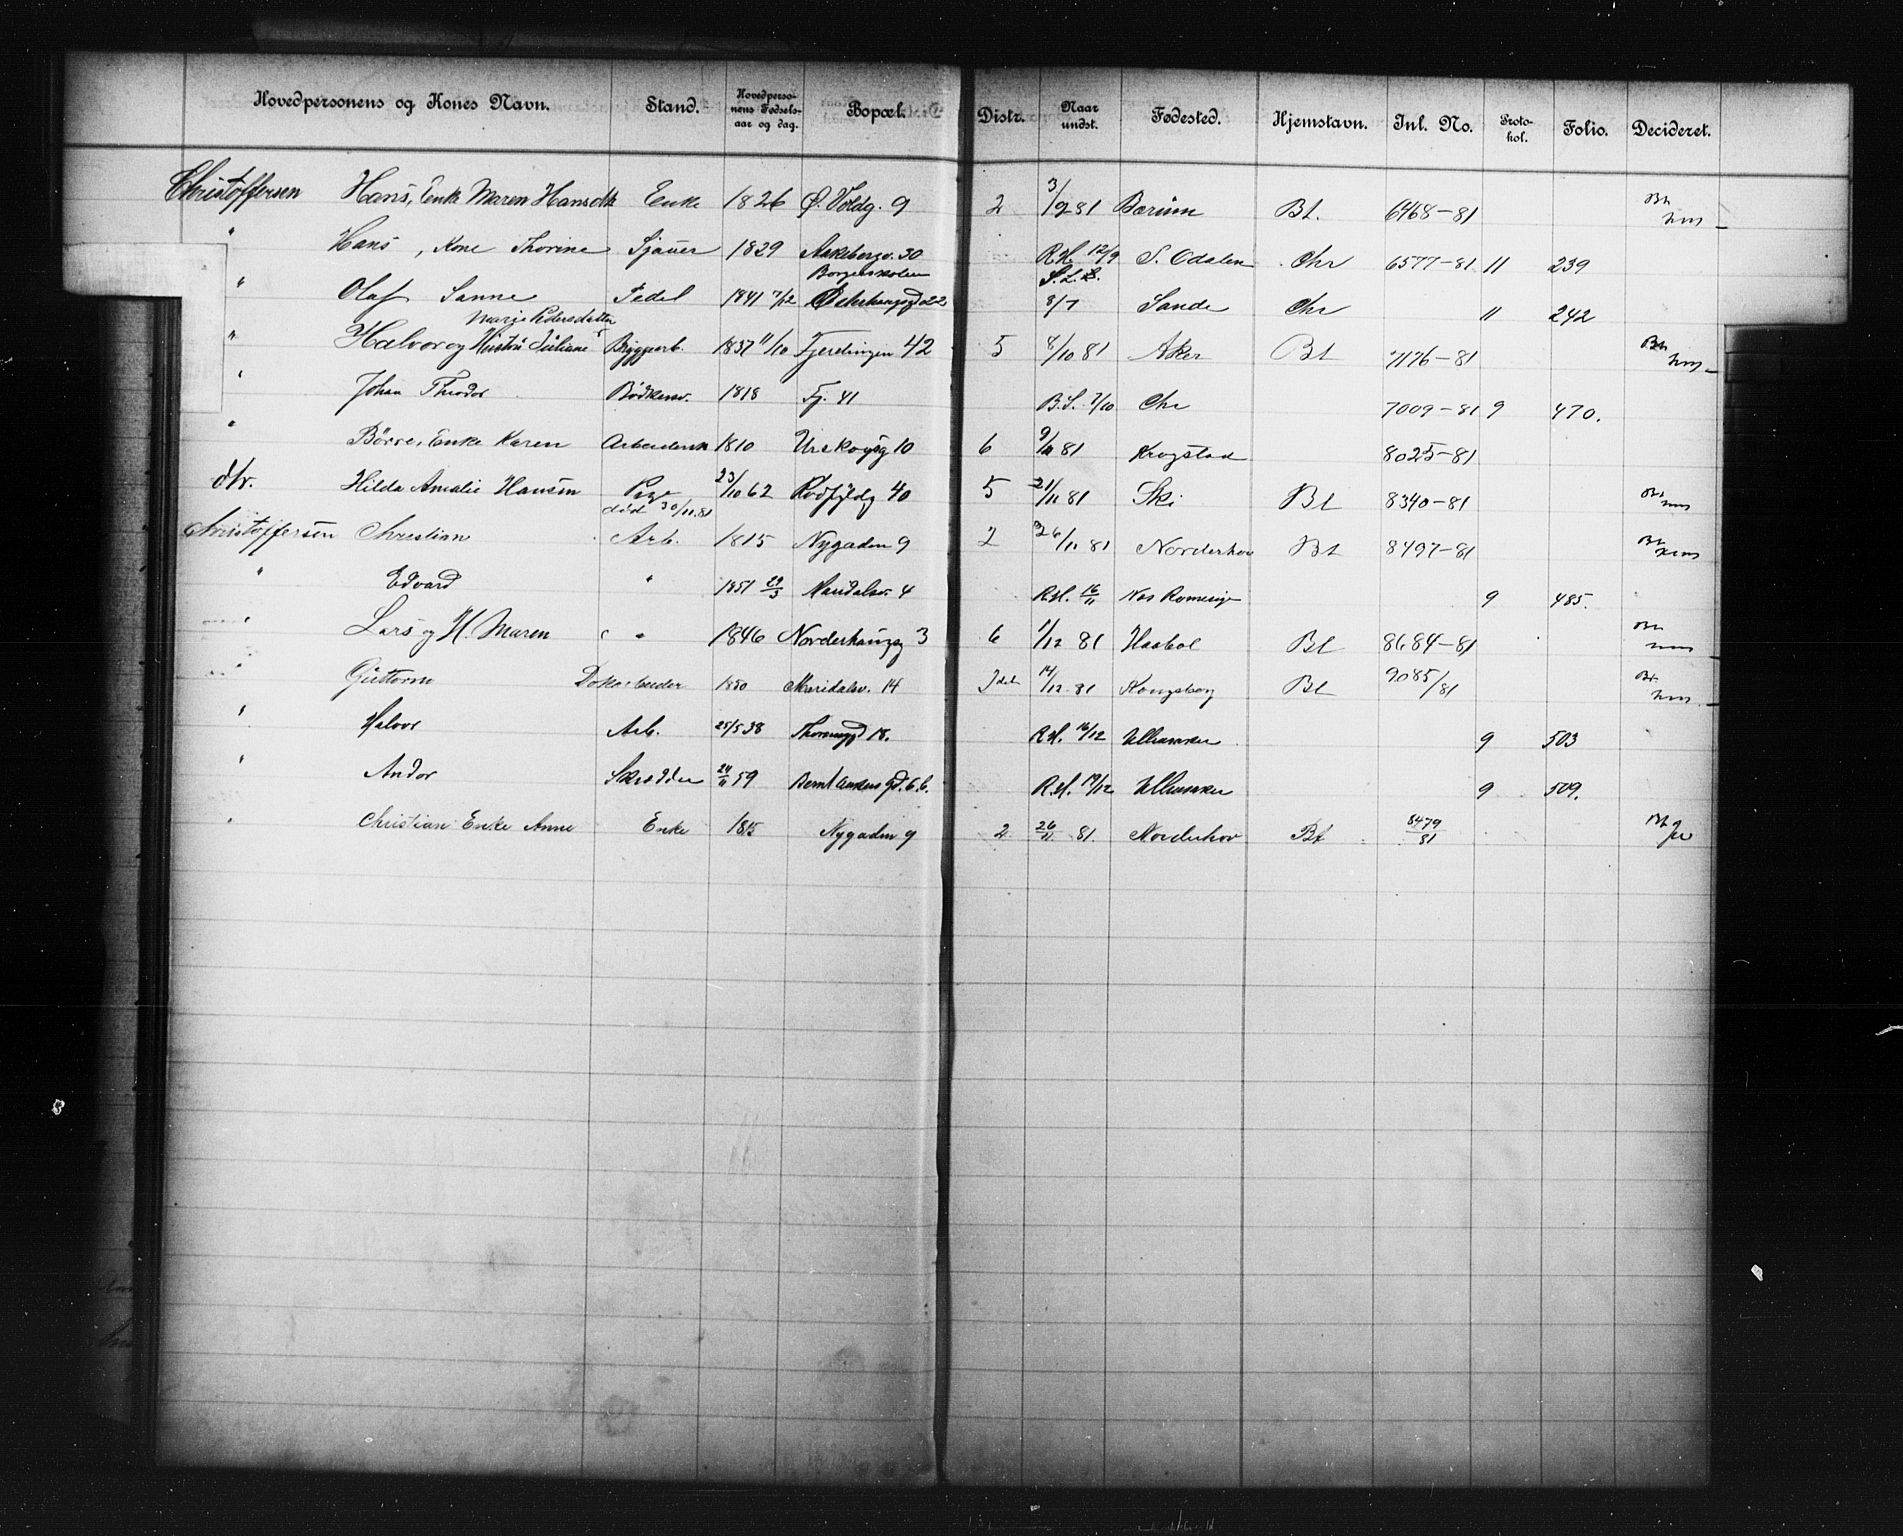 Hovedpersonens og Kones Navn. Stand. Hovedperso-nens Fødsels-aar og dag. Bopæl. Distr. Naar undst. Fødested. Hjemstavn. Inl. No. Proto-kol. Folio. Decideret.
Christoffersen Hans, Enke Maren Hansdtr Enke 1826 Ø. Voldg. 9 2 3/9 81 Bærum Bt. 6468-81 Bt
" Hans, Kone Thorine Sjauer 1829 Aakebergv. 30 R.H. 12/9 S. Odalen Chr 6577-81 11 239
Borgenskolen S.L.
" Olaf Sanne Pedel 1841 7/12 22 8/7 Sande Chr 11 242
Marie Pedersdatter
" Halvor og Hustru Juliane Bryggearb. 1837 11/10 Fjerdingen 42 5 8/10 81 Aker Bt 7176-81 Bt
" Johan Theodor Bødkersv. 1818 Fj. 41 B.S. 7/10 Chr 7009-81 9 470.
" Børre, Enke Karen 1810 Urskougsg 10 6 9/11 81 Krogstad 8025-81
dtr. Hilda Amalie Hansen Pige 23/10 62 Rødfyldg 40 5 21/11 81 Ski Bt 8340-81 Bt
død 30/11.81
Christoffersen Christian Arb. 1815 Nygaden 9 2 26/11 81 Norderhov Bt 8497-81 Bt
" Edvard " 1851 29/3 Maridalsv. 4 R.H. 16/11 Nes Romerige 9 485.
" Lars og H. Maren " 1846 Norderhaugsg 3 6 1/12 81 Haabøl Bt 8684-81 Bt
" Guttorm Dokarbeider 1850 Maridalsv. 14 14/12 81 Kongsberg Bt 9085/81 Bt
" Halvor Arb. 25/5 38 18. R.H. 16/12 Ullensaker 9 503
" Andor Skrædder 59 Bernt Ankers gd. 6.b. R.H. 19/12 Ullensaker 9 509.
" Christian Enke Anne Enke 1815 Nygaden 9 2 26/11 81. Norderhov Bt 8479/81 Bt